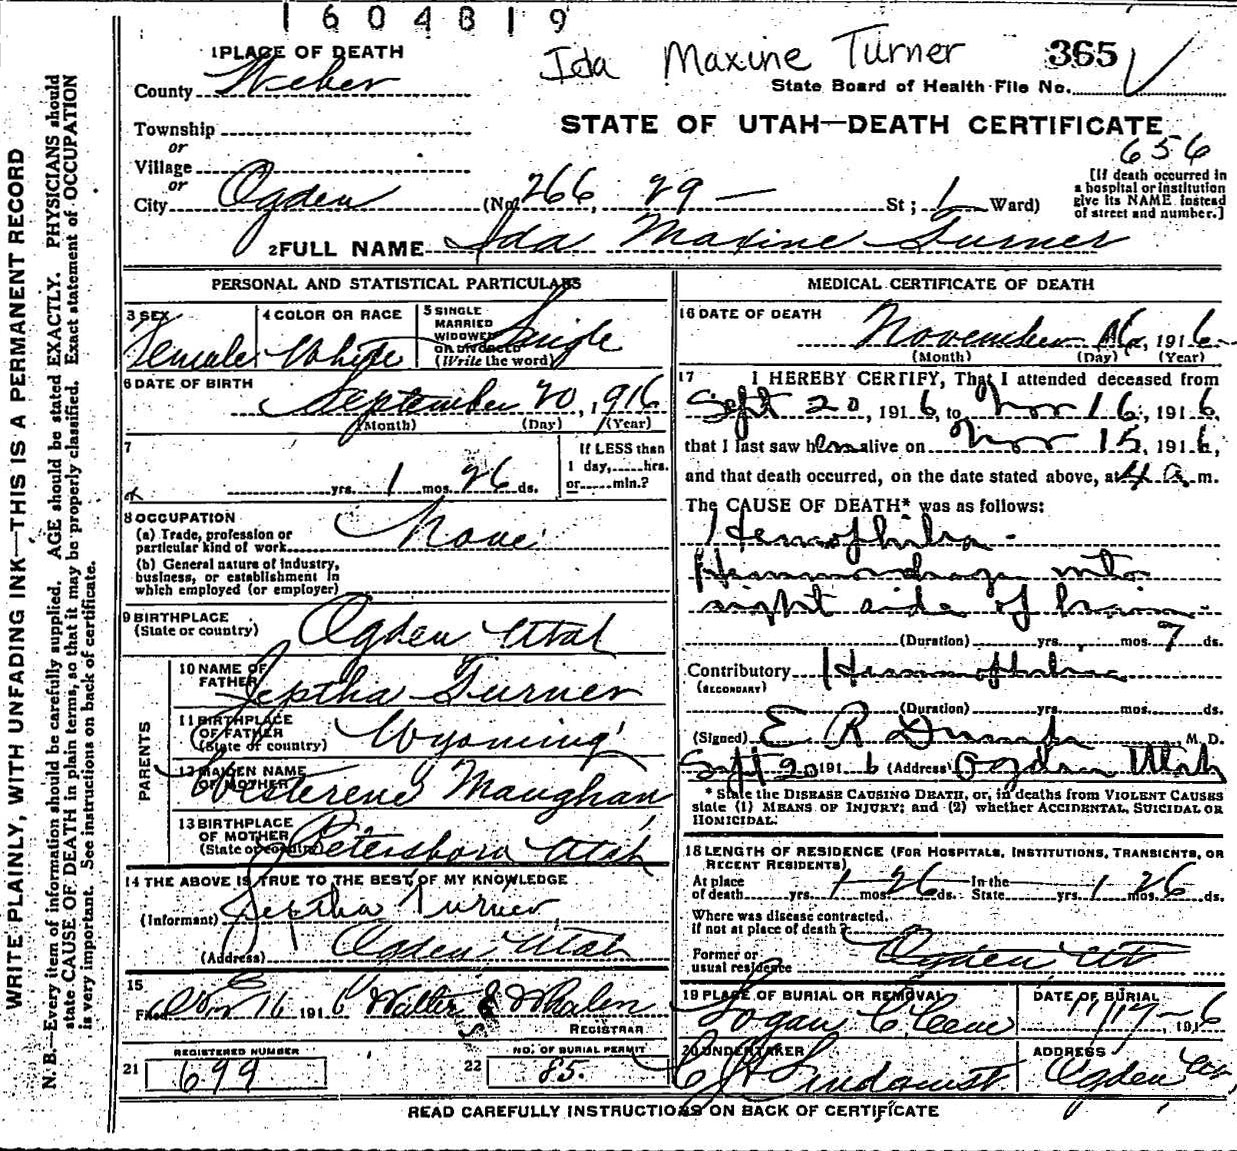 1604819
Ida Maxine Turner 365
1 PLACE OF DEATH
County Weber
State Board of Health File No.
Township
or
STATE OF UTAH—DEATH CERTIFICATE
Village
or
656
City Ogden (No. 266, 29 — St; 1 Ward)
[If death occurred in
a hospital or institution
give its NAME instead
of street and number.]
2 FULL NAME Ida Maxine Turner
PERSONAL AND STATISTICAL PARTICULARS
3 SEX
Female
4 COLOR OR RACE
White
5 SINGLE
MARRIED
WIDOWED
OR DIVORCED
(Write the word)
Single
6 DATE OF BIRTH
September 20, 1916
(Month) (Day) (Year)
7
yrs. 1 mos. 26 ds.
If LESS than
1 day, hrs.
or min.?
8 OCCUPATION
(a) Trade, profession or
particular kind of work None
(b) General nature of industry,
business, or establishment in
which employed (or employer)
9 BIRTHPLACE
(State or country) Ogden Utah
PARENTS
10 NAME OF
FATHER Jeptha Turner
11 BIRTHPLACE
OF FATHER
(State or country) Wyoming
12 MAIDEN NAME
OF MOTHER Maughan
13 BIRTHPLACE
OF MOTHER
(State or country) Petersboro Utah
14 THE ABOVE IS TRUE TO THE BEST OF MY KNOWLEDGE
(Informant) Jeptha Turner
(Address) Ogden Utah
15
Filed Nov 16 1916 Walter Whalen
REGISTRAR
21 REGISTERED NUMBER
699
22 NO. OF BURIAL PERMIT
85.
MEDICAL CERTIFICATE OF DEATH
16 DATE OF DEATH
November 16, 1916
(Month) (Day) (Year)
17 I HEREBY CERTIFY, That I attended deceased from
Sept 20, 1916, to Nov 16, 1916,
that I last saw her alive on Nov 15, 1916,
and that death occurred, on the date stated above, at 4 a.m.
The CAUSE OF DEATH* was as follows:
Hemophilia -
Hemorrhage into
right side of brain
(Duration) yrs. mos. 7 ds.
Contributory Hemophilia
(SECONDARY)
(Duration) yrs. mos. ds.
(Signed) E R M. D.
Sept 20 1916 (Address) Ogden Utah
* State the DISEASE CAUSING DEATH, or, in deaths from VIOLENT CAUSES
state (1) MEANS OF INJURY; and (2) whether ACCIDENTAL, SUICIDAL OR
HOMICIDAL.
18 LENGTH OF RESIDENCE (FOR HOSPITALS, INSTITUTIONS, TRANSIENTS, OR
RECENT RESIDENTS)
At place
of death yrs. 1 mos. 26 ds. In the
State yrs. 1 mos. 26 ds.
Where was disease contracted,
if not at place of death?
Former or
usual residence Ogden Ut
19 PLACE OF BURIAL OR REMOVAL
Logan
DATE OF BURIAL
11/17, 1916
20 UNDERTAKER
Lindquist
ADDRESS
Ogden
READ CAREFULLY INSTRUCTIONS ON BACK OF CERTIFICATE
WRITE PLAINLY, WITH UNFADING INK—THIS IS A PERMANENT RECORD
N. B.—Every item of information should be carefully supplied. AGE should be stated EXACTLY. PHYSICIANS should
state CAUSE OF DEATH in plain terms, so that it may be properly classified. Exact statement of OCCUPATION
is very important. See instructions on back of certificate.